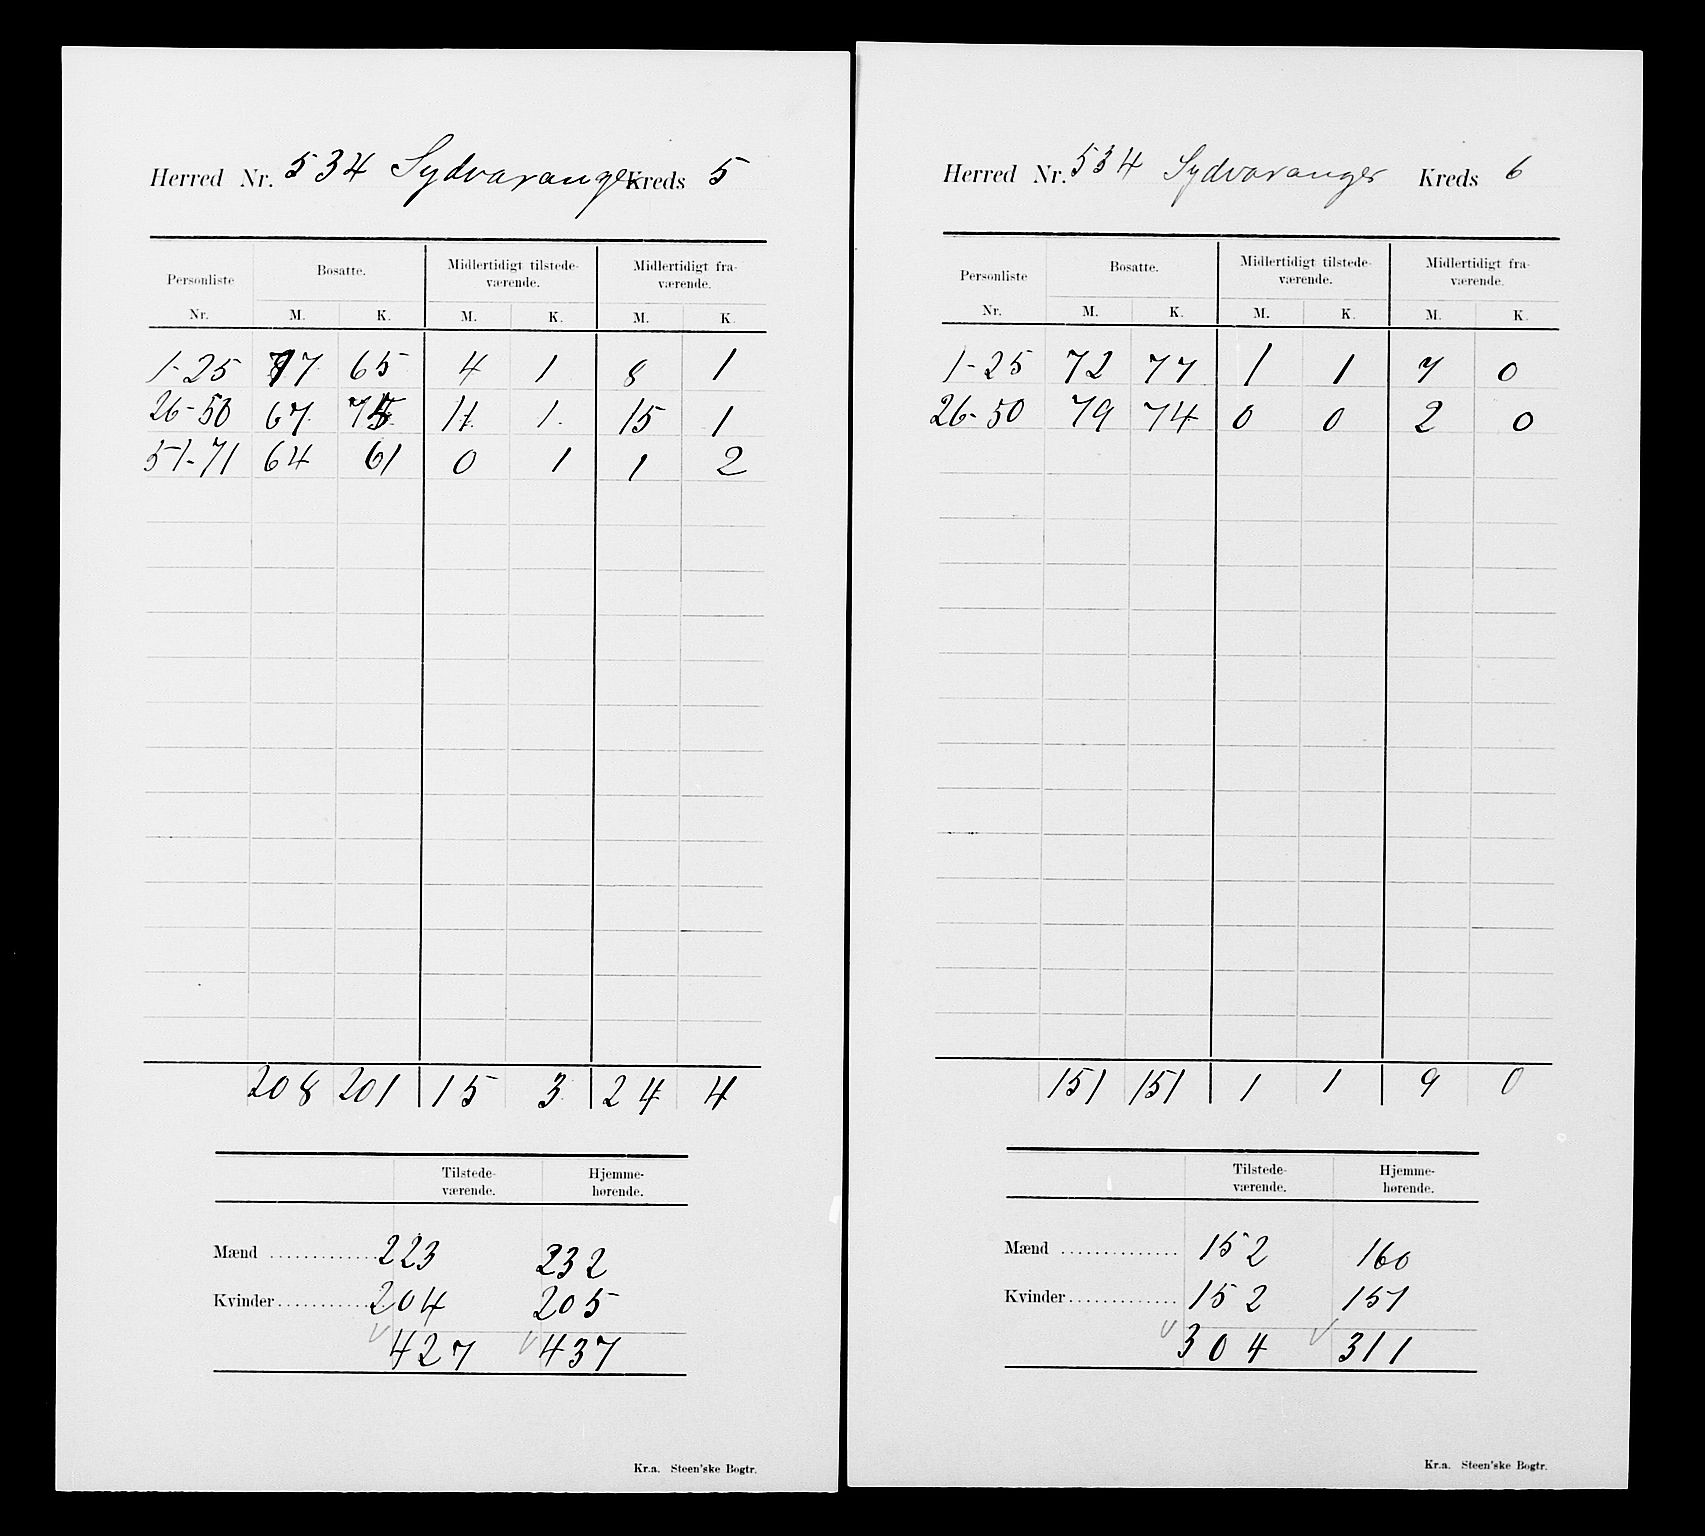 Herred Nr. 534 Sydvaranger Kreds 5
Personliste Nr. Bosatte. Midlertidigt tilstede-værende. Midlertidigt fra-værende.
M. K. M. K. M. K.
1-25 77 65 4 1 8 1
26-50 67 75 11 1 15 1
51-71 64 61 0 1 1 2
208 201 15 3 24 4
Tilstede-værende. Hjemme-hørende.
Mænd 223 232
Kvinder 204 205
427 437
Kr.a. Steen'ske Bogtr.
Herred Nr. 534 Sydvaranger Kreds 6
Personliste Nr. Bosatte. Midlertidigt tilstede-værende. Midlertidigt fra-værende.
M. K. M. K. M. K.
1-25 72 77 1 1 7 0
26-50 79 74 0 0 2 0
151 151 1 1 9 0
Tilstede-værende. Hjemme-hørende.
Mænd 152 160
Kvinder 152 151
304 311
Kr.a. Steen'ske Bogtr.